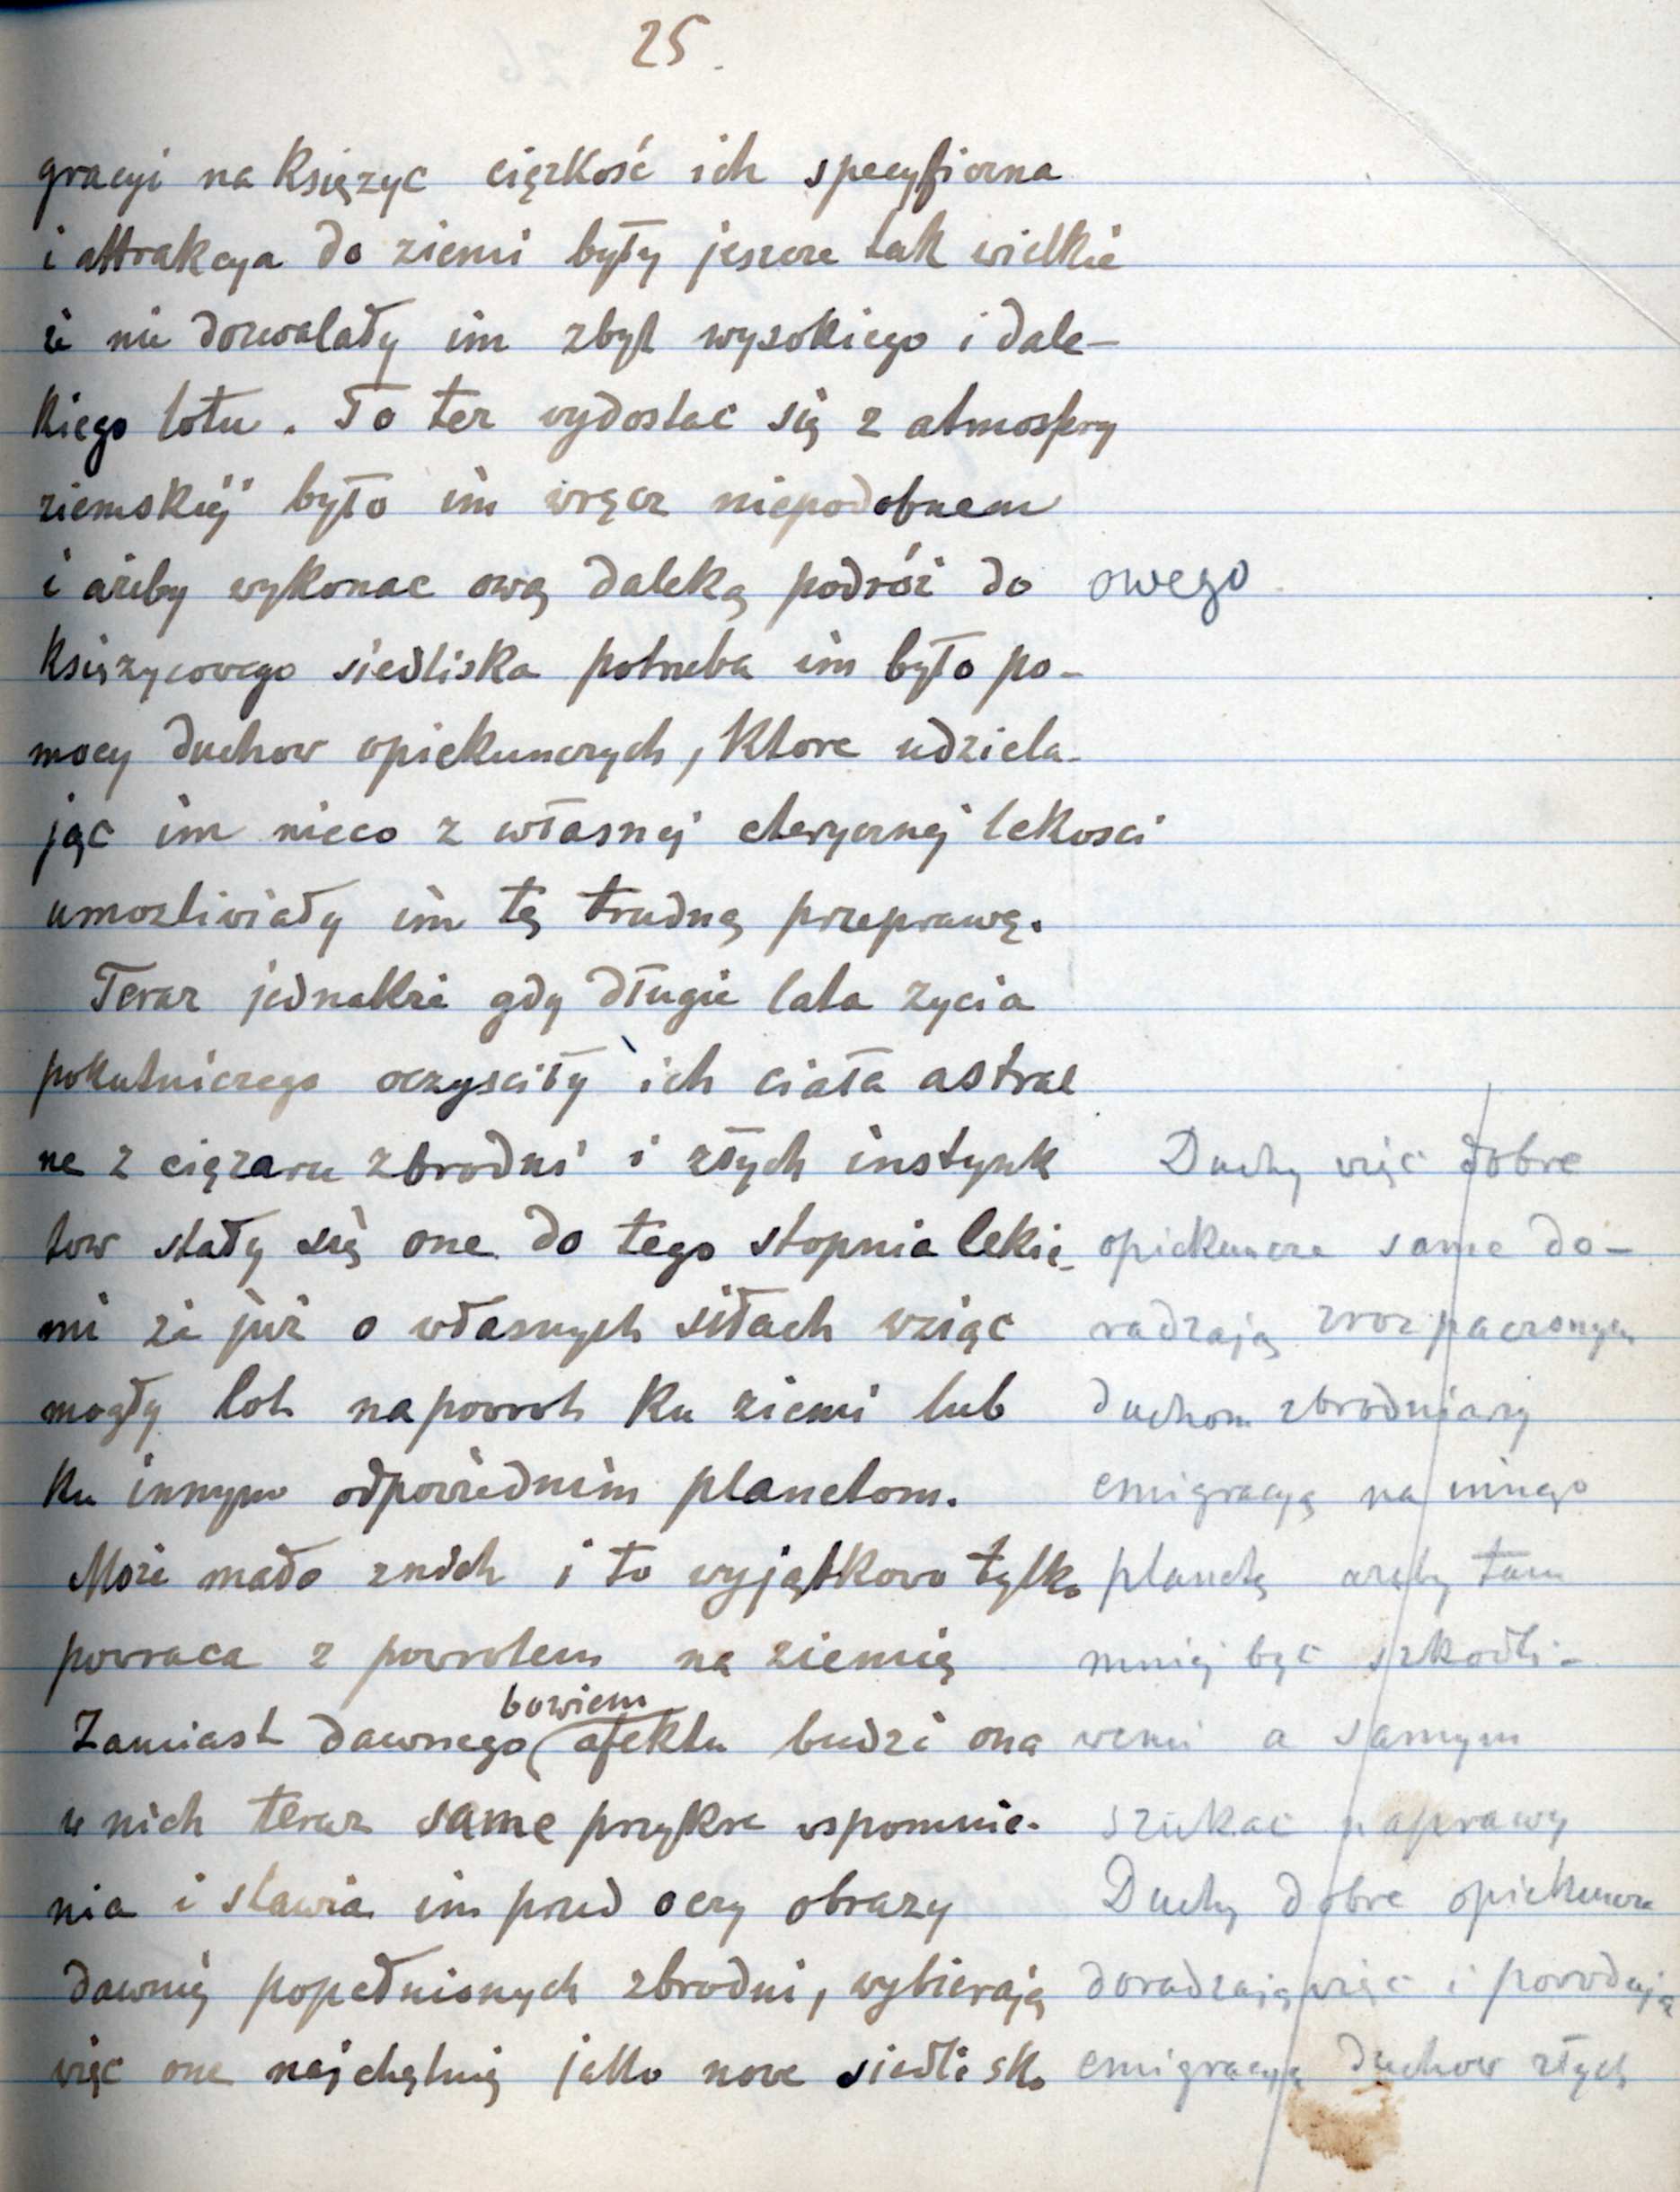 25.
gracyi na Księzyc cięzkość ich specyficzna
i attrakcya do ziemi były jeszcze tak wielkie
że nie dozwalały im zbyt wysokiego i dale-
kiego lotu. To tez wydostac się z atmosfery
ziemskiej było im wręcz niepodobnem
i ażeby wykonac ową daleką podróż do owego
Księzycowego siedliska potrzeba im było po-
mocy duchow opiekunczych, ktore udziela-
jąc im nieco z własnej eterycznej lekosci
umozliwiały im tę trudną przeprawę.
Teraz jednakże gdy długie lata zycia
pokutniczego oczysciły ich ciała astral
ne z cięzaru zbrodni i złych instynk
tow stały się one do tego stopnia lekie-
mi że już o własnych siłach wziąc
mogły lot napowrot ku ziemi lub
ku innym odpowiednim planetom.
Może mało znich i to wyjątkowo tylko
powraca z powrotem na ziemię
Zamiast dawnego bowiem afektu budzi ona
u nich teraz same przykre wspomnie-
nia i stawia im przed oczy obrazy
dawniej popełnionych zbrodni, wybierają
więc one najchętniej jako nowe siedlisko
Duchy więc dobre
opiekuncze same do-
radzają zrozpaczonym
duchom zbrodniarzy
emigracyę na innego
planetę azeby tam
mniej być szkodli-
wemi a samym
szukac naprawy
Duchy dobre opiekuncze
doradzają więc i powodują
emigracyę duchow złych